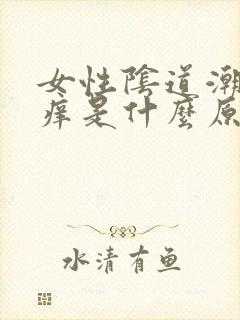 女性陰道潮
痒是什麼原
水清有鱼